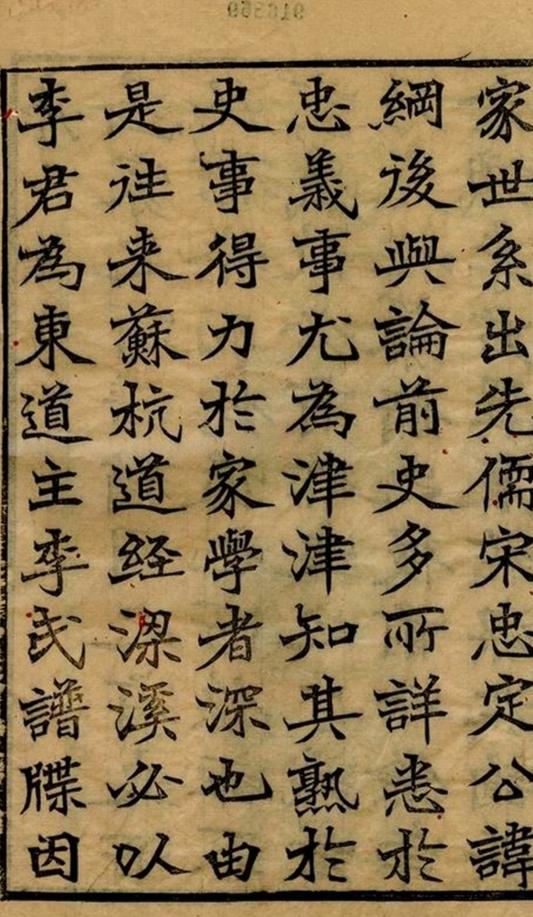 家世系出先儒宋忠定公諱
綱後與論前史多所詳悉於
忠義事尤為津津知其熟於
史事得力於家學者深也由
是往来蘇杭道経梁溪必以
李君為東道主李氏譜牒因